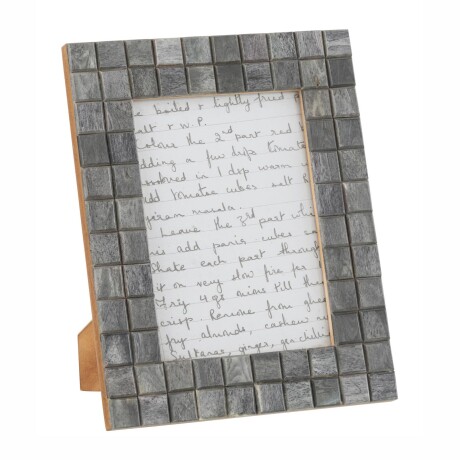 e boiled & lightly fried
alt & W.P.
Colour the 2nd part red b
dding a few drops tomatoe
in 1 dsp warm
add tomatoe cubes salt &
masala.
Leave the 3rd part whi
as add paris cubes
Shake each part through
it on very slow fire for
Fry 4 gs onions till they
crisp. Remove from ghee
fry almonds, cashew nu
Sultanas, ginger, gr. chilie